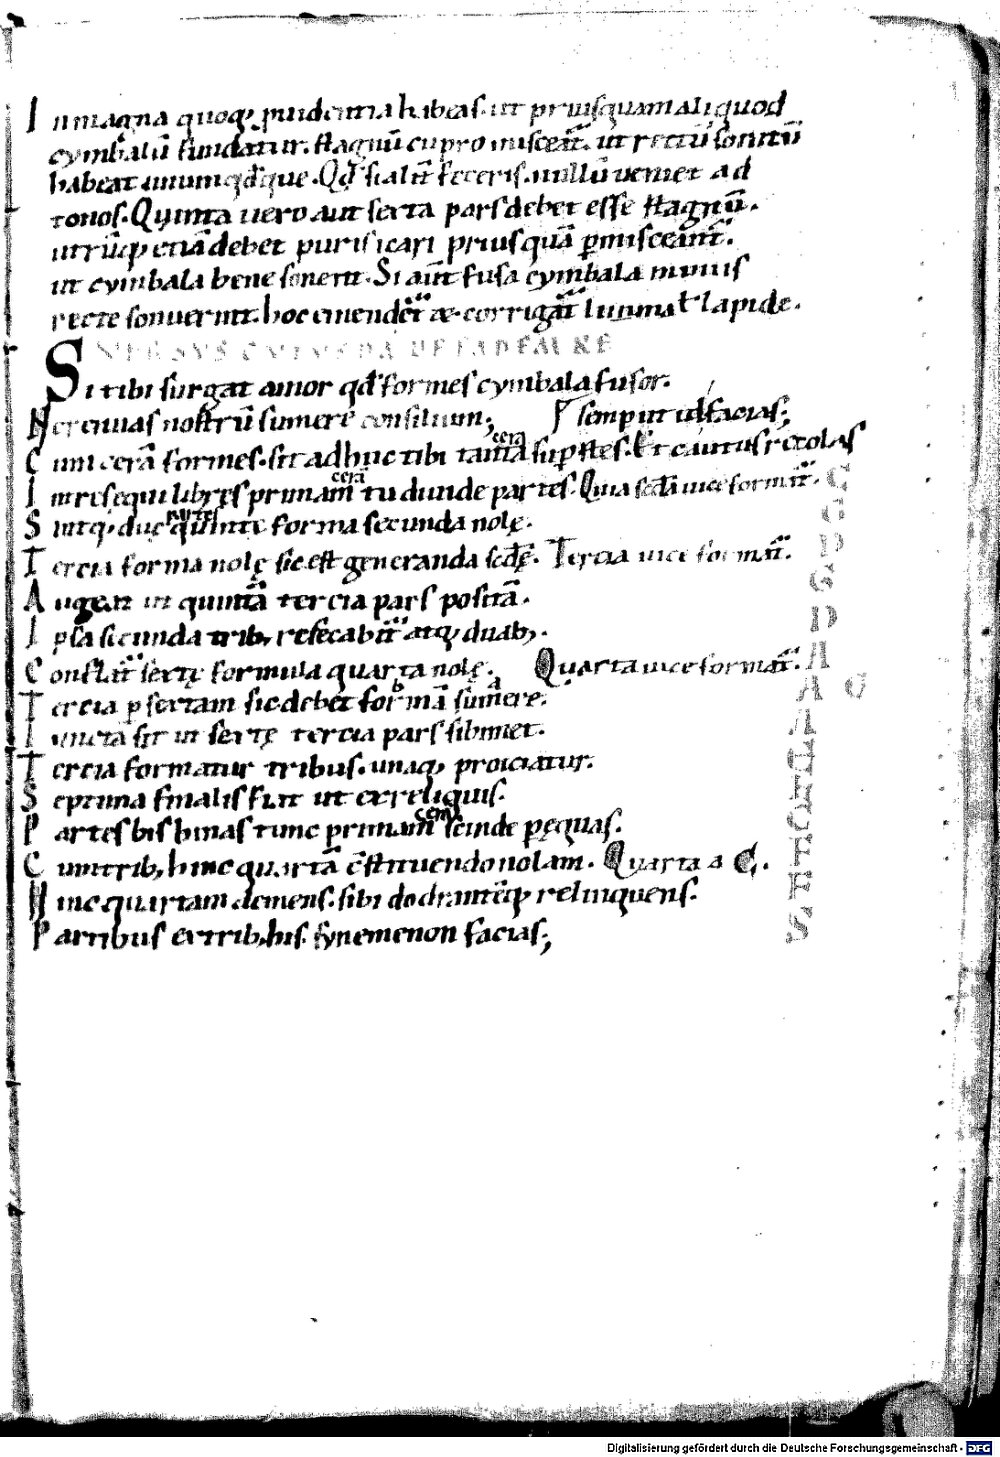 In magna quoq; prudentia habeas. ut priusquam aliquod
cymbalū fundatur. stagnū cupro misceat̄. ut rectū sonitū
habeat unumqd̄que. Qd̄ si alit̄ feceris. nullū ueniet ad
tonos. Quinta uero aut sexta pars debet esse stagnū.
utrūq; etiā debet purificari priusquā pmisceant̄.
ut cymbala bene sonent. Si aūt fusa cymbala minus
recte sonuerint. hoc emendet̄ & corrigat̄ lima ł lapide.
Si tibi surgat amor qd̄ formes cymbala fusor.
Ne rennuas nostrū sumere consilium;
semp ut id facias;
Cum cerā formes. sit adhuc tibi tanta supstes. Et cautus recolas
cera
In resequi libres primam tu diuide partes. Quia scd̄a uice format̄.
cerā
Sintq; duę quintę forma secunda nolę.
partes
Tercia forma nolę sic est generanda scd̄ę. Tercia uice format̄.
Augeat in quintā tercia pars positā.
Ipsa secunda trib; resecabit̄ atq; duab;.
Conflat̄ sextę formula quarta nolę. Quarta uice format̄.
Tercia p sextam sic debet formā sumere.
b a
Iuncta sit in sextę tercia pars sibimet.
Tercia formatur tribus. unaq; proiciatur.
Septima finalis fiat ut ex reliquis.
Partes bis binas tunc primam scinde pęquas.
Cum trib; hinc quartā c̄stituendo nolam. Quarta a C.
Hinc quartam demens. sibi dodrantēq; relinquens.
Partibus ex trib; his. synemenon facias;
C
G
D
G
D
A
A G
Digitalisierung gefördert durch die Deutsche Forschungsgemeinschaft - DFG